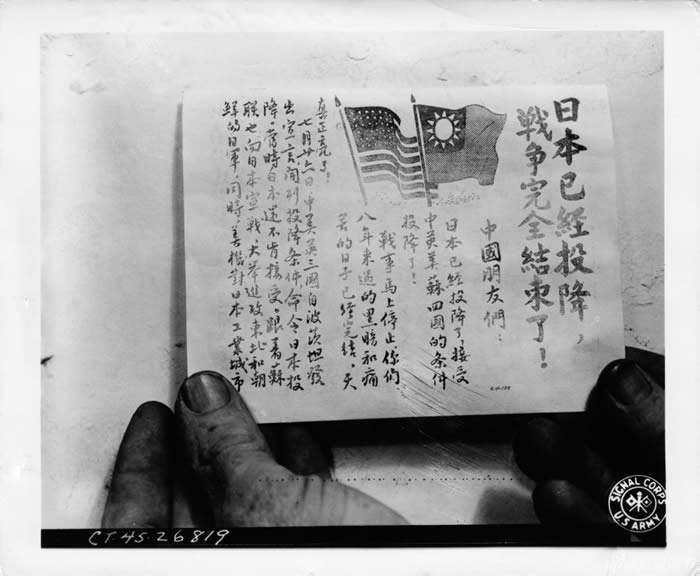 日本已經投降，
戰爭完全結束了！
中國朋友們：
日本已經投降了，接受
中英美蘇四國的條件
投降了！
戰事馬上停止，你們
八年來過的黑暗和痛
苦的日子已經完結，天
真正亮了！
七月廿六日中美英三國自波茨坦發
出宣言，開列投降条件，命令日本投
降。當時日本還不肯接受。跟着蘇
联也向日本宣战，大举進攻東北和朝
鮮的日軍，同時，美機對日本工業城市
CT-45-26819
SIGNAL CORPS
U.S. ARMY